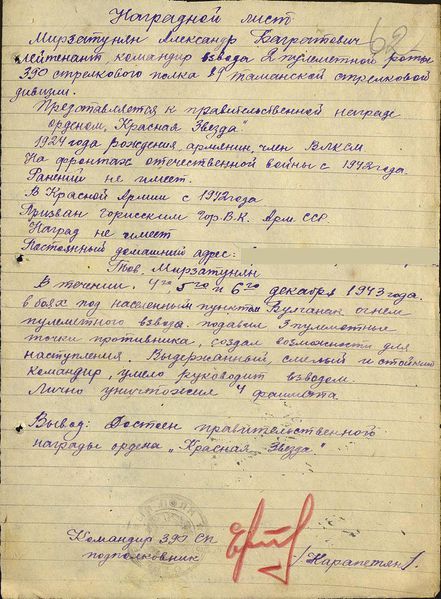 Наградной лист
62
Мирзатунян Александр Багратович
лейтенант, командир взвода 2 пулеметной роты
390 стрелкового полка 89 таманской стрелковой
дивизии.
Представляется к правительственной награде
орденом „Красная Звезда"
1924 года рождения, армянин, член ВЛКСМ
На фронтах отечественной войны с 1942 года
Ранений не имеет.
В Красной Армии с 1942 года
Призван горисским Гор.В.К. Арм. ССР
Наград не имеет
Постоянный домашний адрес:
Тов. Мирзатунян
В течении. 4го 5го и 6го декабря 1943 года.
в боях под населенным пунктам Булганак огнем
пулеметного взвода. подавил 3 пулеметные
точки противника, создал возможности для
наступления. Выдержанный смелый и стойкий
командир, умело руководит взводом.
Лично уничтожил 4 фашиста
Вывод: Достоен правительственного
награды ордена „Красная Звезда"
Командир 390 СП
подполковник /Карапетян/.